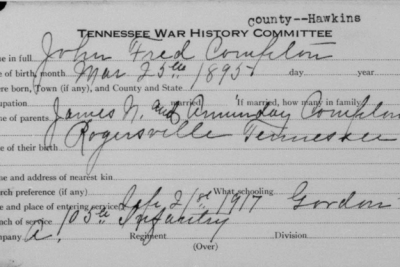 county--Hawkins
TENNESSEE WAR HISTORY COMMITTEE
me in full John Fred Compton
e of birth, month Mar 25th 1895 day year
ere born, Town (if any), and County and State
cupation married If married, how many in family
e of parents James N. and Compton
Rogersville Tennessee
e of their birth
e and address of nearest kin
urch preference (if any) What schooling
e and place of entering service 21st 1917 Gordon
nch of service 105th Infantry
mpany a. Regiment Division
(Over)